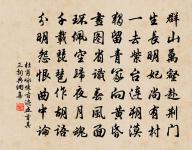 群山萬壑赴荊門
生長明妃尚有村
一去紫台連朔漠
獨留青冢向黃昏
畫圖省識春風面
環珮空歸夜月魂
千載琵琶作胡語
分明怨恨曲中論
杜甫詠懷古迹五首其
三